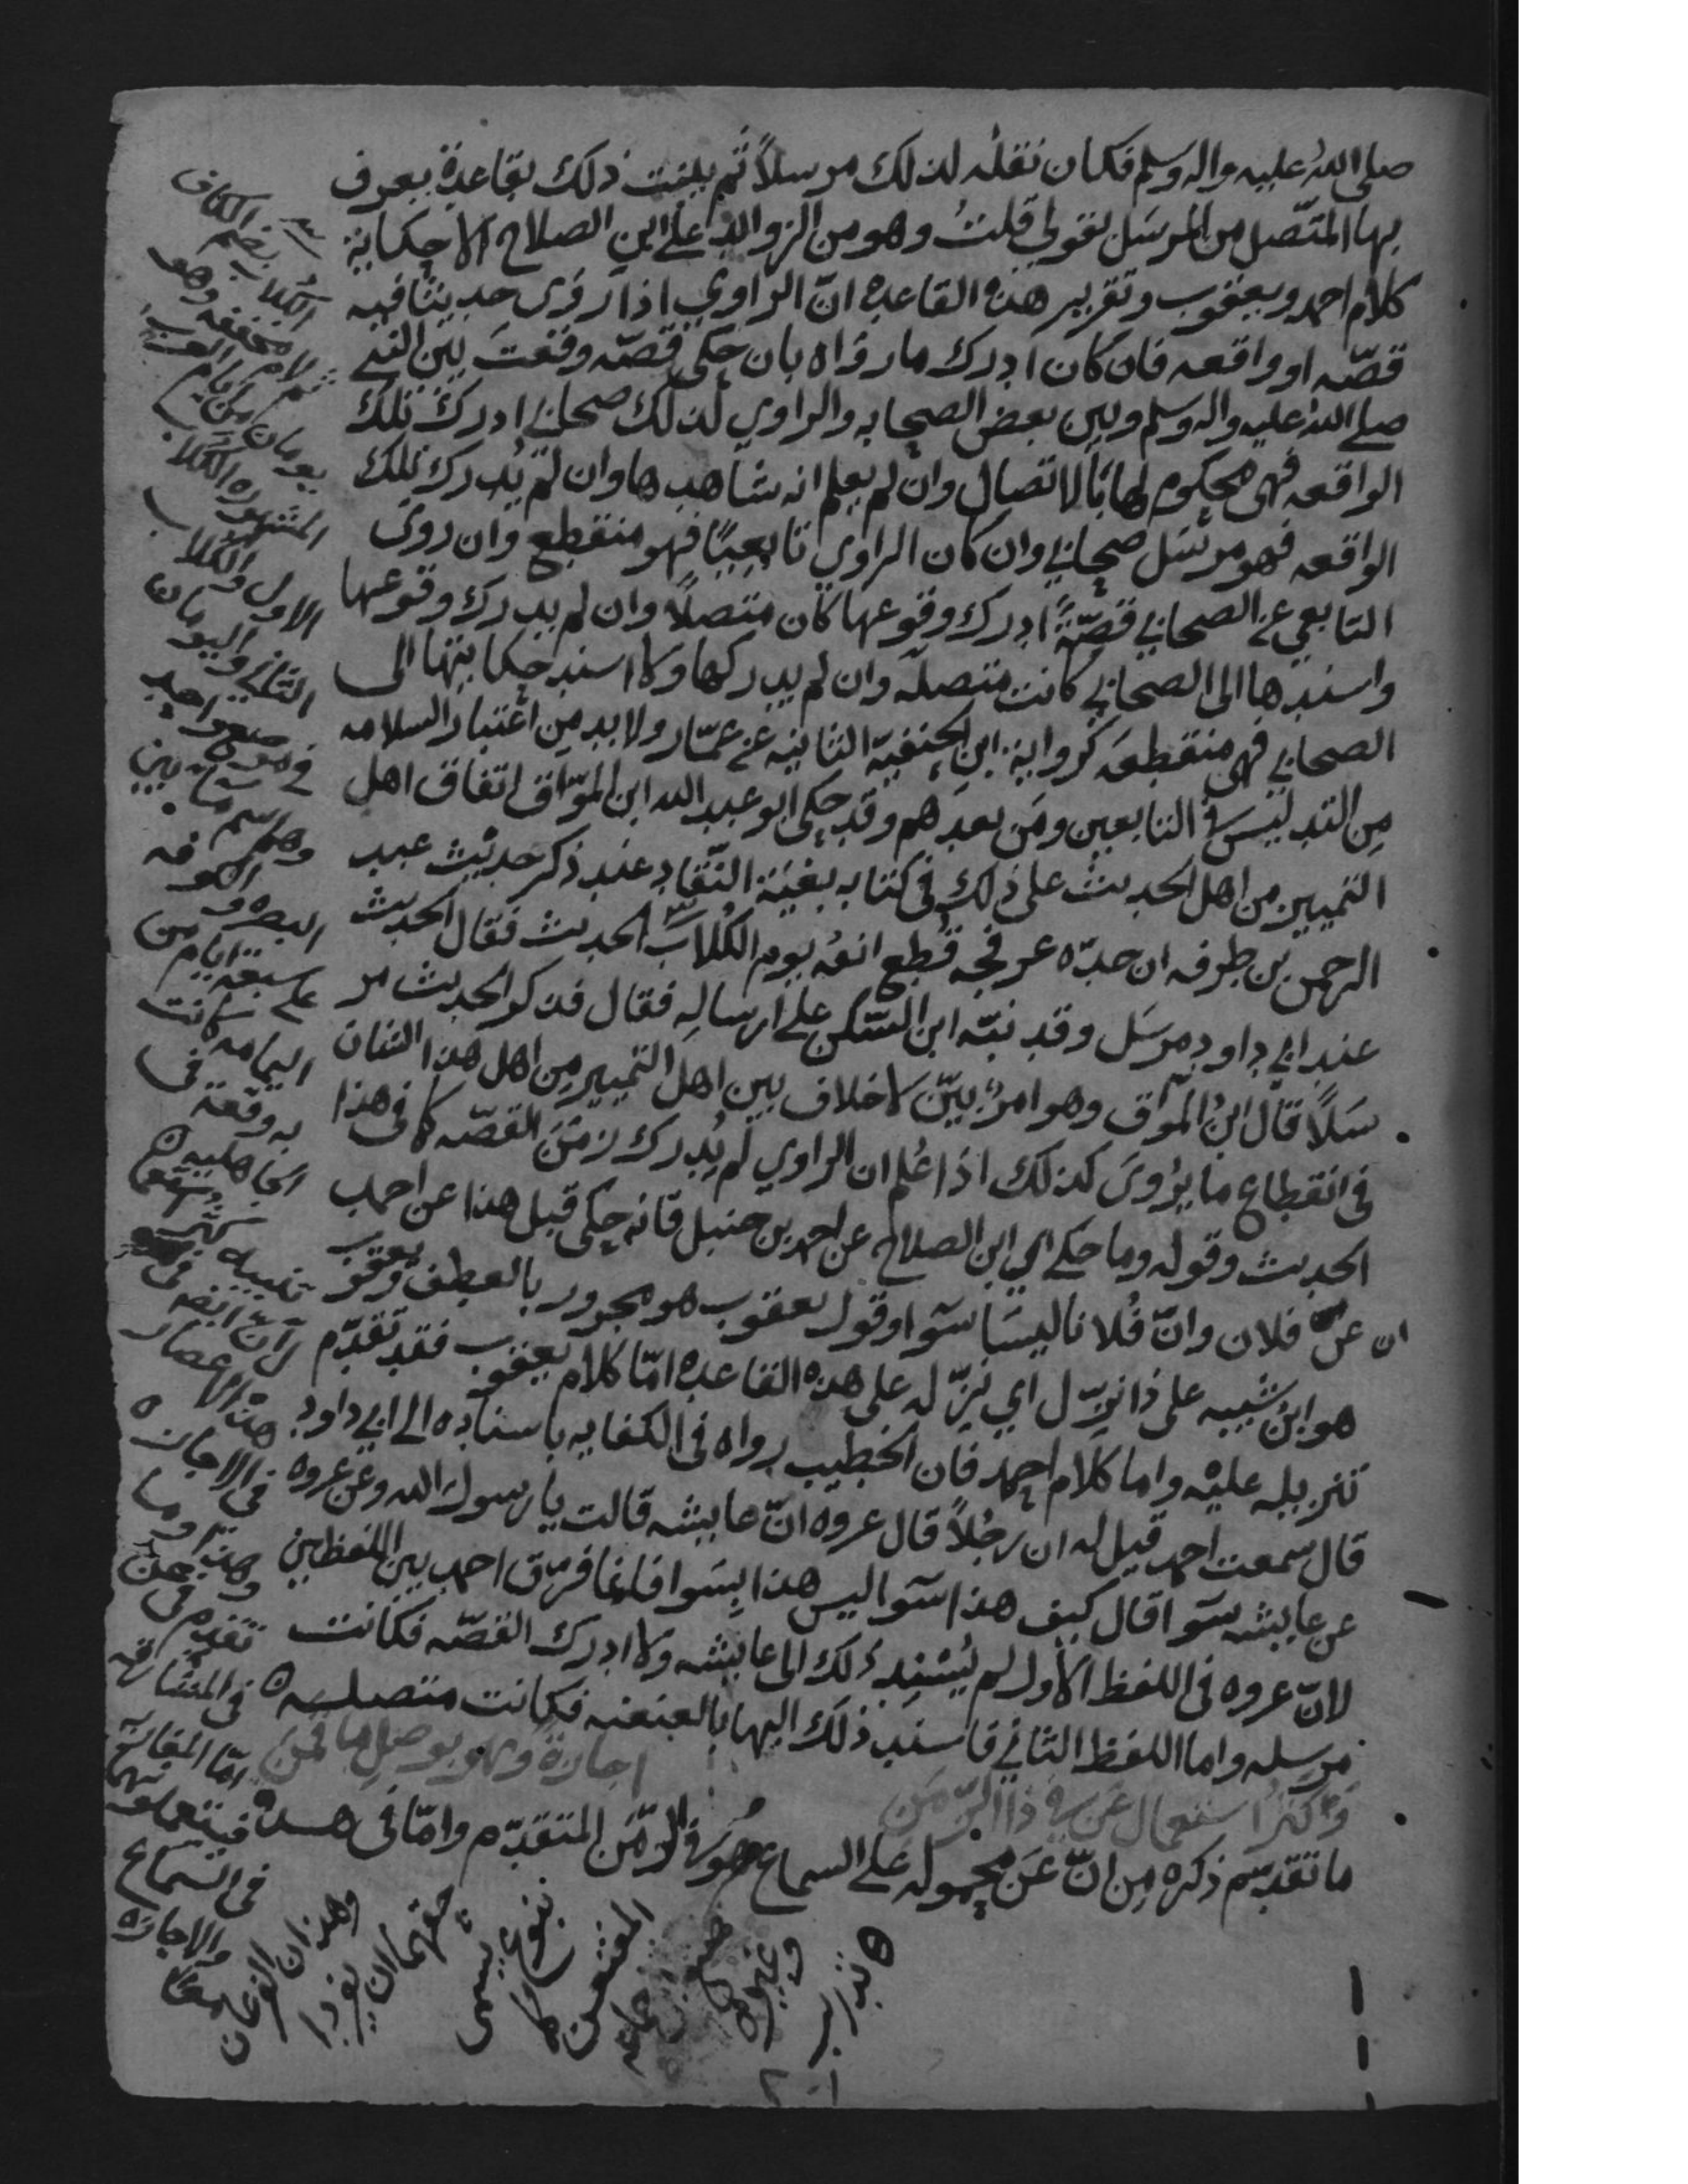 صلى الله عليه واله وسلم فكان نقله لذلك مرسلاً ثم بلغت ذلك بقاعدة يعرف
بها المتّصل من المرسَل بقولي قلتُ وهو من الزوايد على ابن الصلاح الا حكاية
كلام احمد ويعقوب وتقرير هذه القاعده انّ الراوي اذا روى حديثا فيه
قصّه او واقعه فان كان ادرك ما رواه بان حكى قصّه وقعتَ بين النبي
صلى الله عليه واله وسلم وبين بعض الصحابه والراوي لذلك صحابي ادرك تلك
الواقعه فهى محكوم لها بالاتصال وان لم يعلم انه شاهدها وان لم يُدرك تلك
الواقعه فهو مرسَل صحابي وان كان الراوي تابعيًا فهو منقطع وان روى
التابعي عن الصحابي قصّةً ادرك وقوعها كان متصلاً وان لم يدرك وقوعها
واسندها الى الصحابي كانت متصلة وان لم يدركها ولا اسند حكايتها الى
الصحابي فهى منقطعة كرواية ابن الحنفيّة الثانيه عن عمّار ولا بد من اعتبار السلامه
مِن التدليس في التابعين ومَن بعدهم وقد حكى ابو عبد الله ابن الموّاق اتفاق اهل
التمييز من اهل الحديث على ذلك في كتابه بغية النّقاد عند ذكر حديث عبد
الرحمن بن طرفه ان جدّه عرفجه قُطع انفه يوم الكُلاب الحديث فقال الحديث
عند ابي داود مرسَل وقد نبّه ابن السّكن على ارسالِه فقال فذكر الحديث مر
سَلاً قال ابنُ الموّاق وهو امرٌ بيّن لا خلاف بين اهل التمييز مِن اهل هذا الشان
في انقطاع ما يُروىَ كذلك اذا عُلم ان الراوي لم يُدرك زمَنَ القصّه كما في هذا
الحديث وقوله وما حكى اي ابن الصلاح عن احمد بن حنبل فانه حكى قبل هذا عن احمد
ان عن فلان وانّ فُلانا ليسَا سَوا وقول يعقوب هو مجرور بالعطف ويعقوب
هو ابنُ شيبه على ذا نزّل اي نزّله على هذه القاعده امّا كلام يعقوب فقد تقدّم
تنزيله عليْه واما كلام احمد فان الخطيب رواه في الكفايه باسناده الى ابي داود
قال سمعت احمد قيل له ان رجُلاً قال عروه انّ عايشه قالت يا رسول الله وعن عروه
عن عايشه سَوا قال كيف هذا سَوا ليس هذا بِسَوا فانما فرّق احمد بين اللفظين
لانّ عروه في اللفظ الاول لم يُسْنِد ذلك الى عايشه ولا ادرك القصّه فكانت
مرسله واما اللفظ الثاني فاسند ذلك اليها بالعنعنه فكانت متصله ه
وَكثرُ استعمال عَن في ذا الزّمَن
اجازةً وهو بوصلٍ ما قَمَن
ما تقدّم ذكره مِن انّ عَن محموله على السماع هو في الزّمَن المتقدّم وامّا في هذه
الكُلاب بضم الكاف
ثم لام مخففه وهو
يومان من ايام العرب
المشهوره الكُلاب
الاول والكلاب
الثاني واليومان
في موضع واحد
وهو اسم ماء بين
البصره والكوفه
على سبعة ايام من
اليمامه كانت
به وقعة في
الجاهليه ه